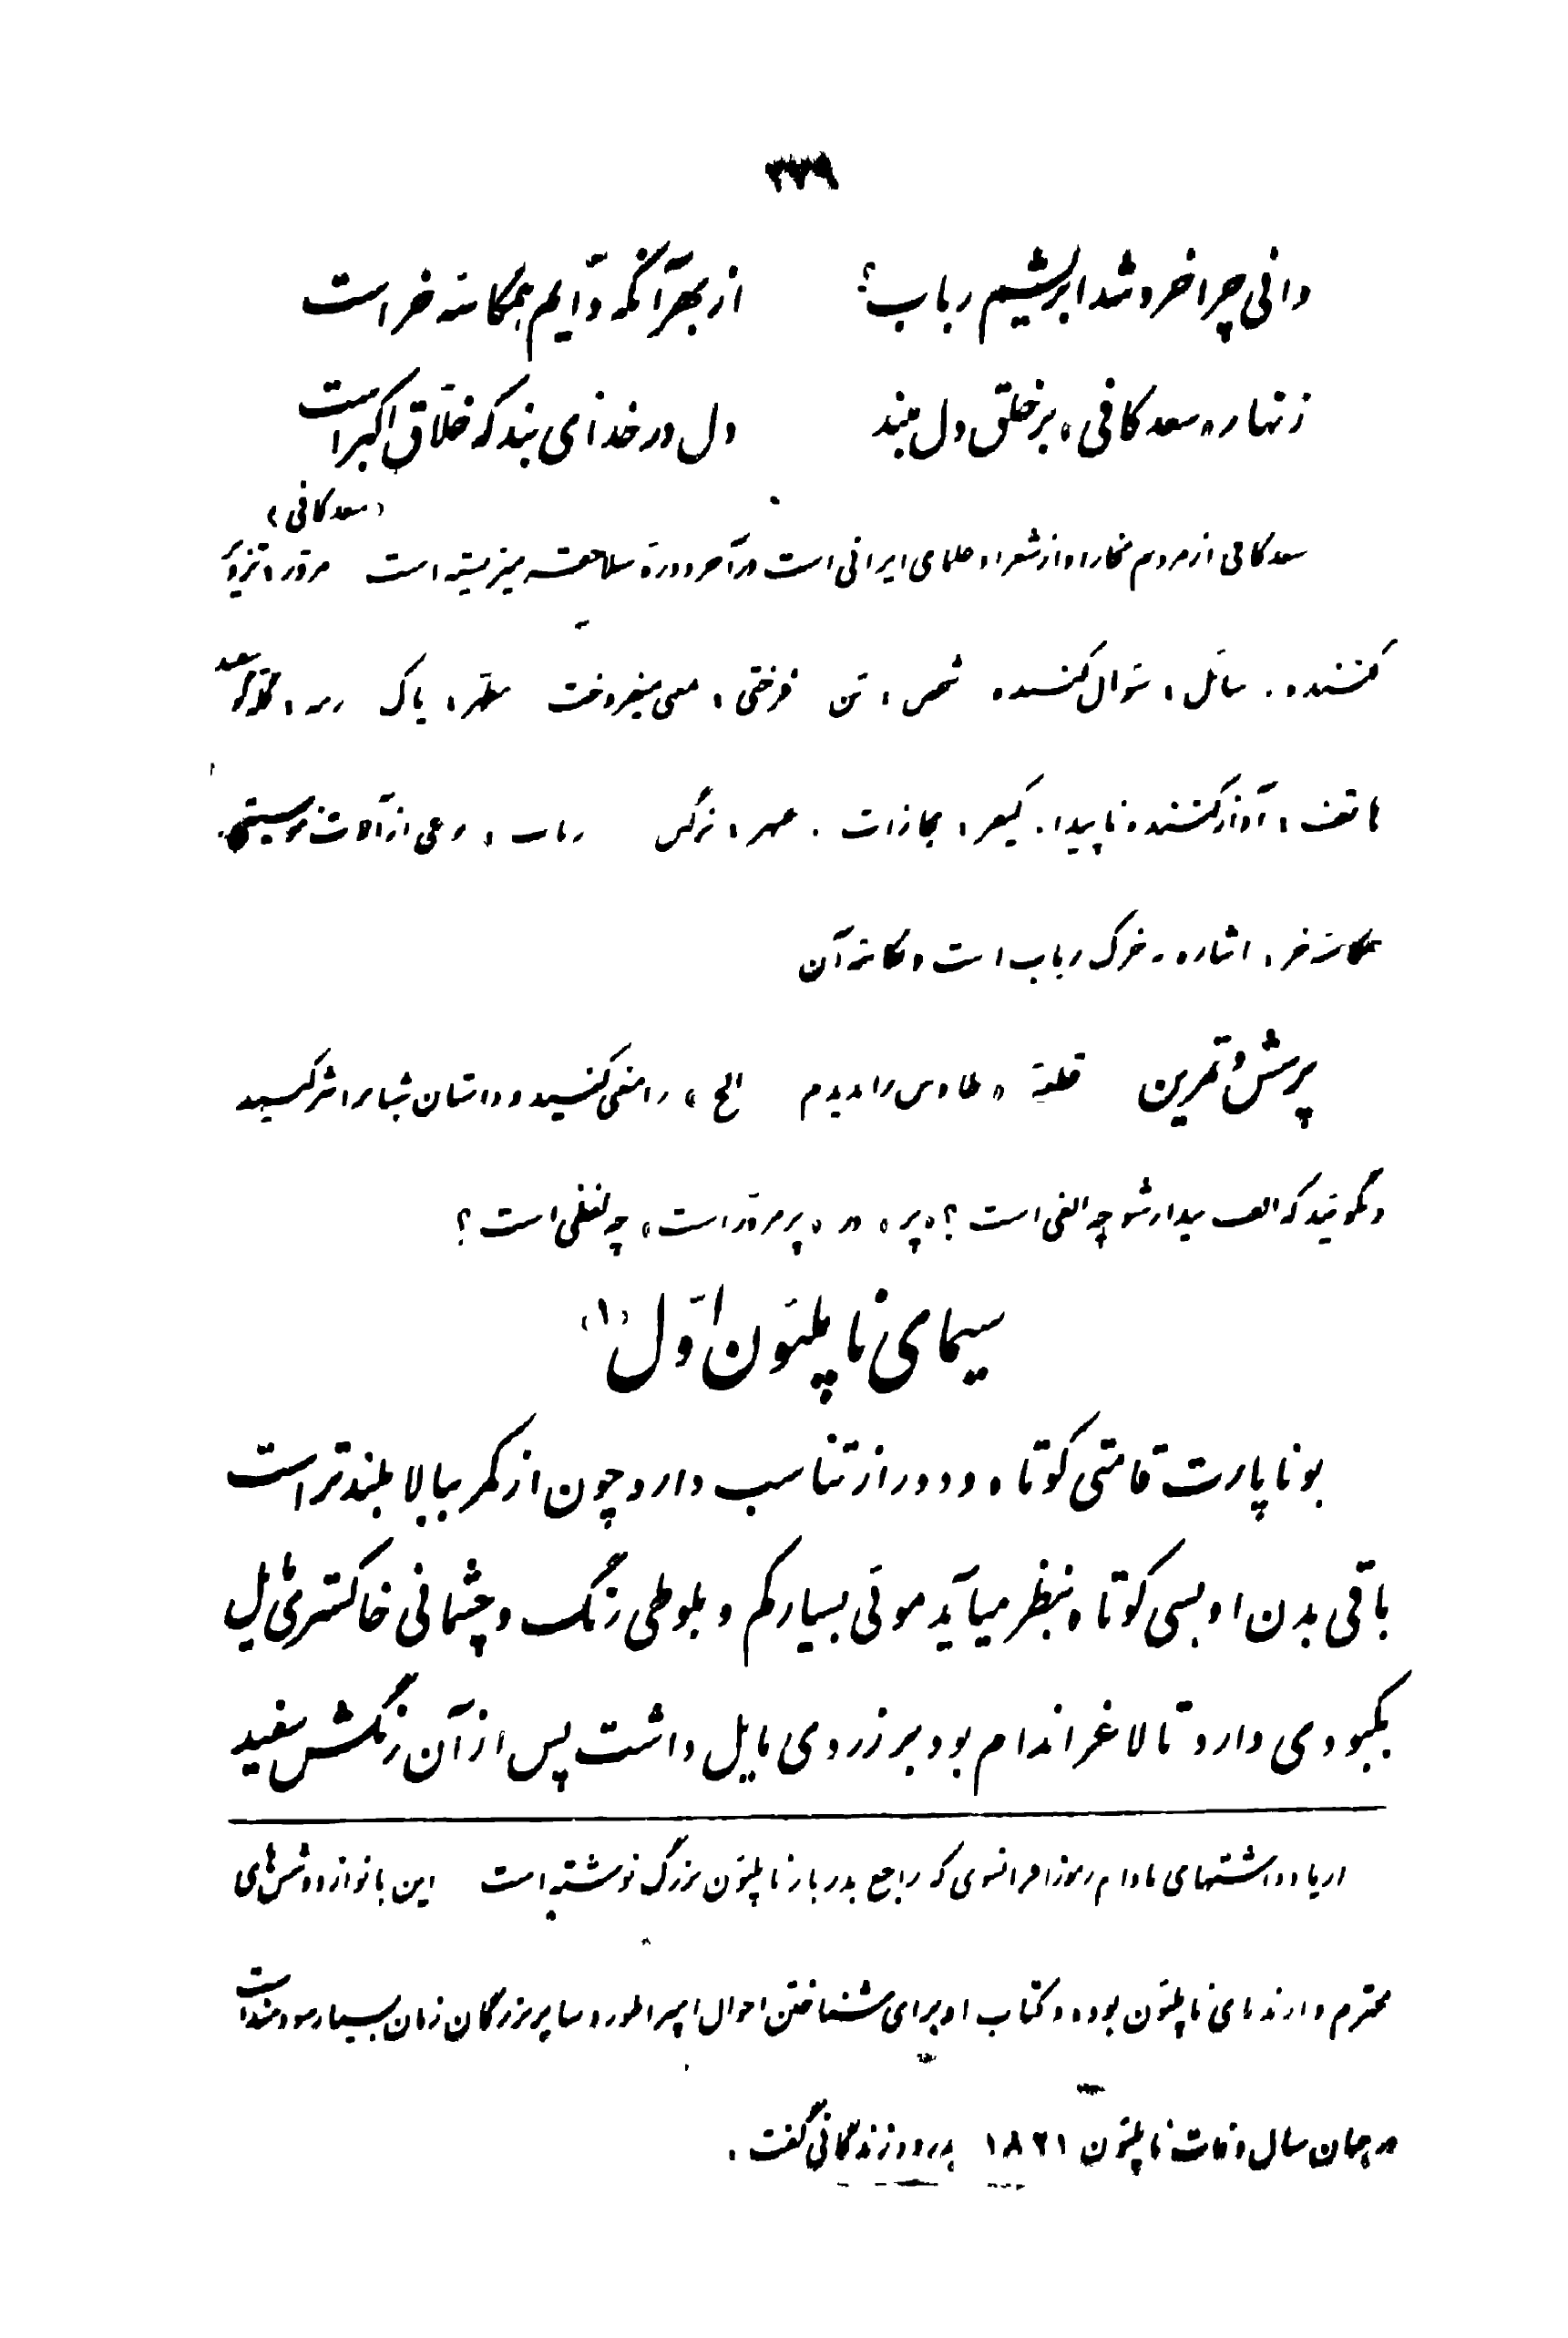 ۳۷۹
دانی چرا خروشد ابریشم رباب؟ از بهر آنکه دایم همکاسه خر است
زنهار «سعد کافی» بر خلق دل مبند دل در خدای بند که خلاق اکبر است
(سعد کافی)
سعد کافی از مردم بخارا و از شعرا و علمای ایرانی است در آخر دوره سلاجقه میزیسته است مزور، تزویر
کننده. سائل، سؤال کننده شخص، تن فروختی، معنی میفروخت مطهر، پاک
هاتف، آواز کننده ناپیدا. کیفر، مجازات. عبهر، نرگس رباب، نوعی از آلات موسیقی.
همکاسه خر، اشاره به خرک رباب است و کاسه آن
پرسش و تمرین قطعهٔ «طاوس را بدیدم الخ» را منفی کنید و داستان شبا را نثر کنید
و بگوئید که الف بیدار شو چه الفی است؟ «پر» در «پر مزور است» چه لفظی است؟
سیمای ناپلئون اول (۱)
بوناپارت قامتی کوتاه و دور از تناسب دارد چون از کمر ببالا بلندتر است
باقی بدن او بسی کوتاه بنظر میآید موئی بسیار کم و بلوطی رنگ و چشمانی خاکستری مایل
بکبودی دارد تا لاغر اندام بود بر زردی مایل داشت پس از آن رنگش سفید
از یادداشتهای مادام رموزا فرانسوی که راجع بدربار ناپلئون بزرگ نوشته است این بانو از دوشس‌های
محترم و از ندمای ناپلئون بوده و کتاب او برای شناختن احوال امپراطور و سایر بزرگان زمان بسیار سودمند است
در همان سال وفات ناپلئون ۱۸۲۱ بدرود زندگانی گفت.